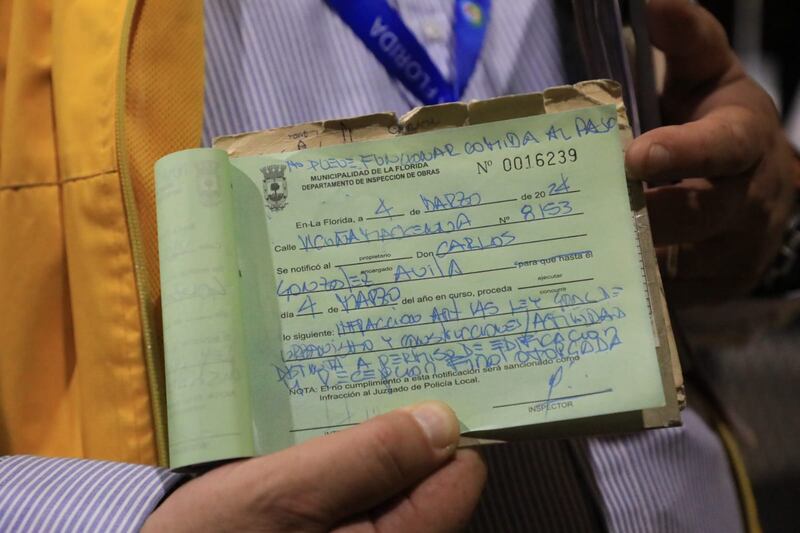 FLORIDA
NO PUEDE FUNCIONAR COMIDA AL PASO
MUNICIPALIDAD DE LA FLORIDA
DEPARTAMENTO DE INSPECCIÓN DE OBRAS
Nº 0016239
En La Florida, a 4 de MARZO de 2024
Calle VICUÑA MACKENNA Nº 8153
propietario
Se notificó al Don CARLOS
encargado
GONZALEZ AVILA "para que hasta el
ejecutar
día 4 de MARZO del año en curso, proceda
concurra
lo siguiente: INFRACCION ART 145 LEY GRAL DE
URBANISMO Y CONSTRUCCIONES/ACTIVIDAD
DISTINTA A PERMISO DE EDIFICACION
Y RECEPCION OTORGADA
NOTA: El no cumplimiento a esta notificación será sancionado como
Infracción al Juzgado de Policía Local.
INSPECTOR